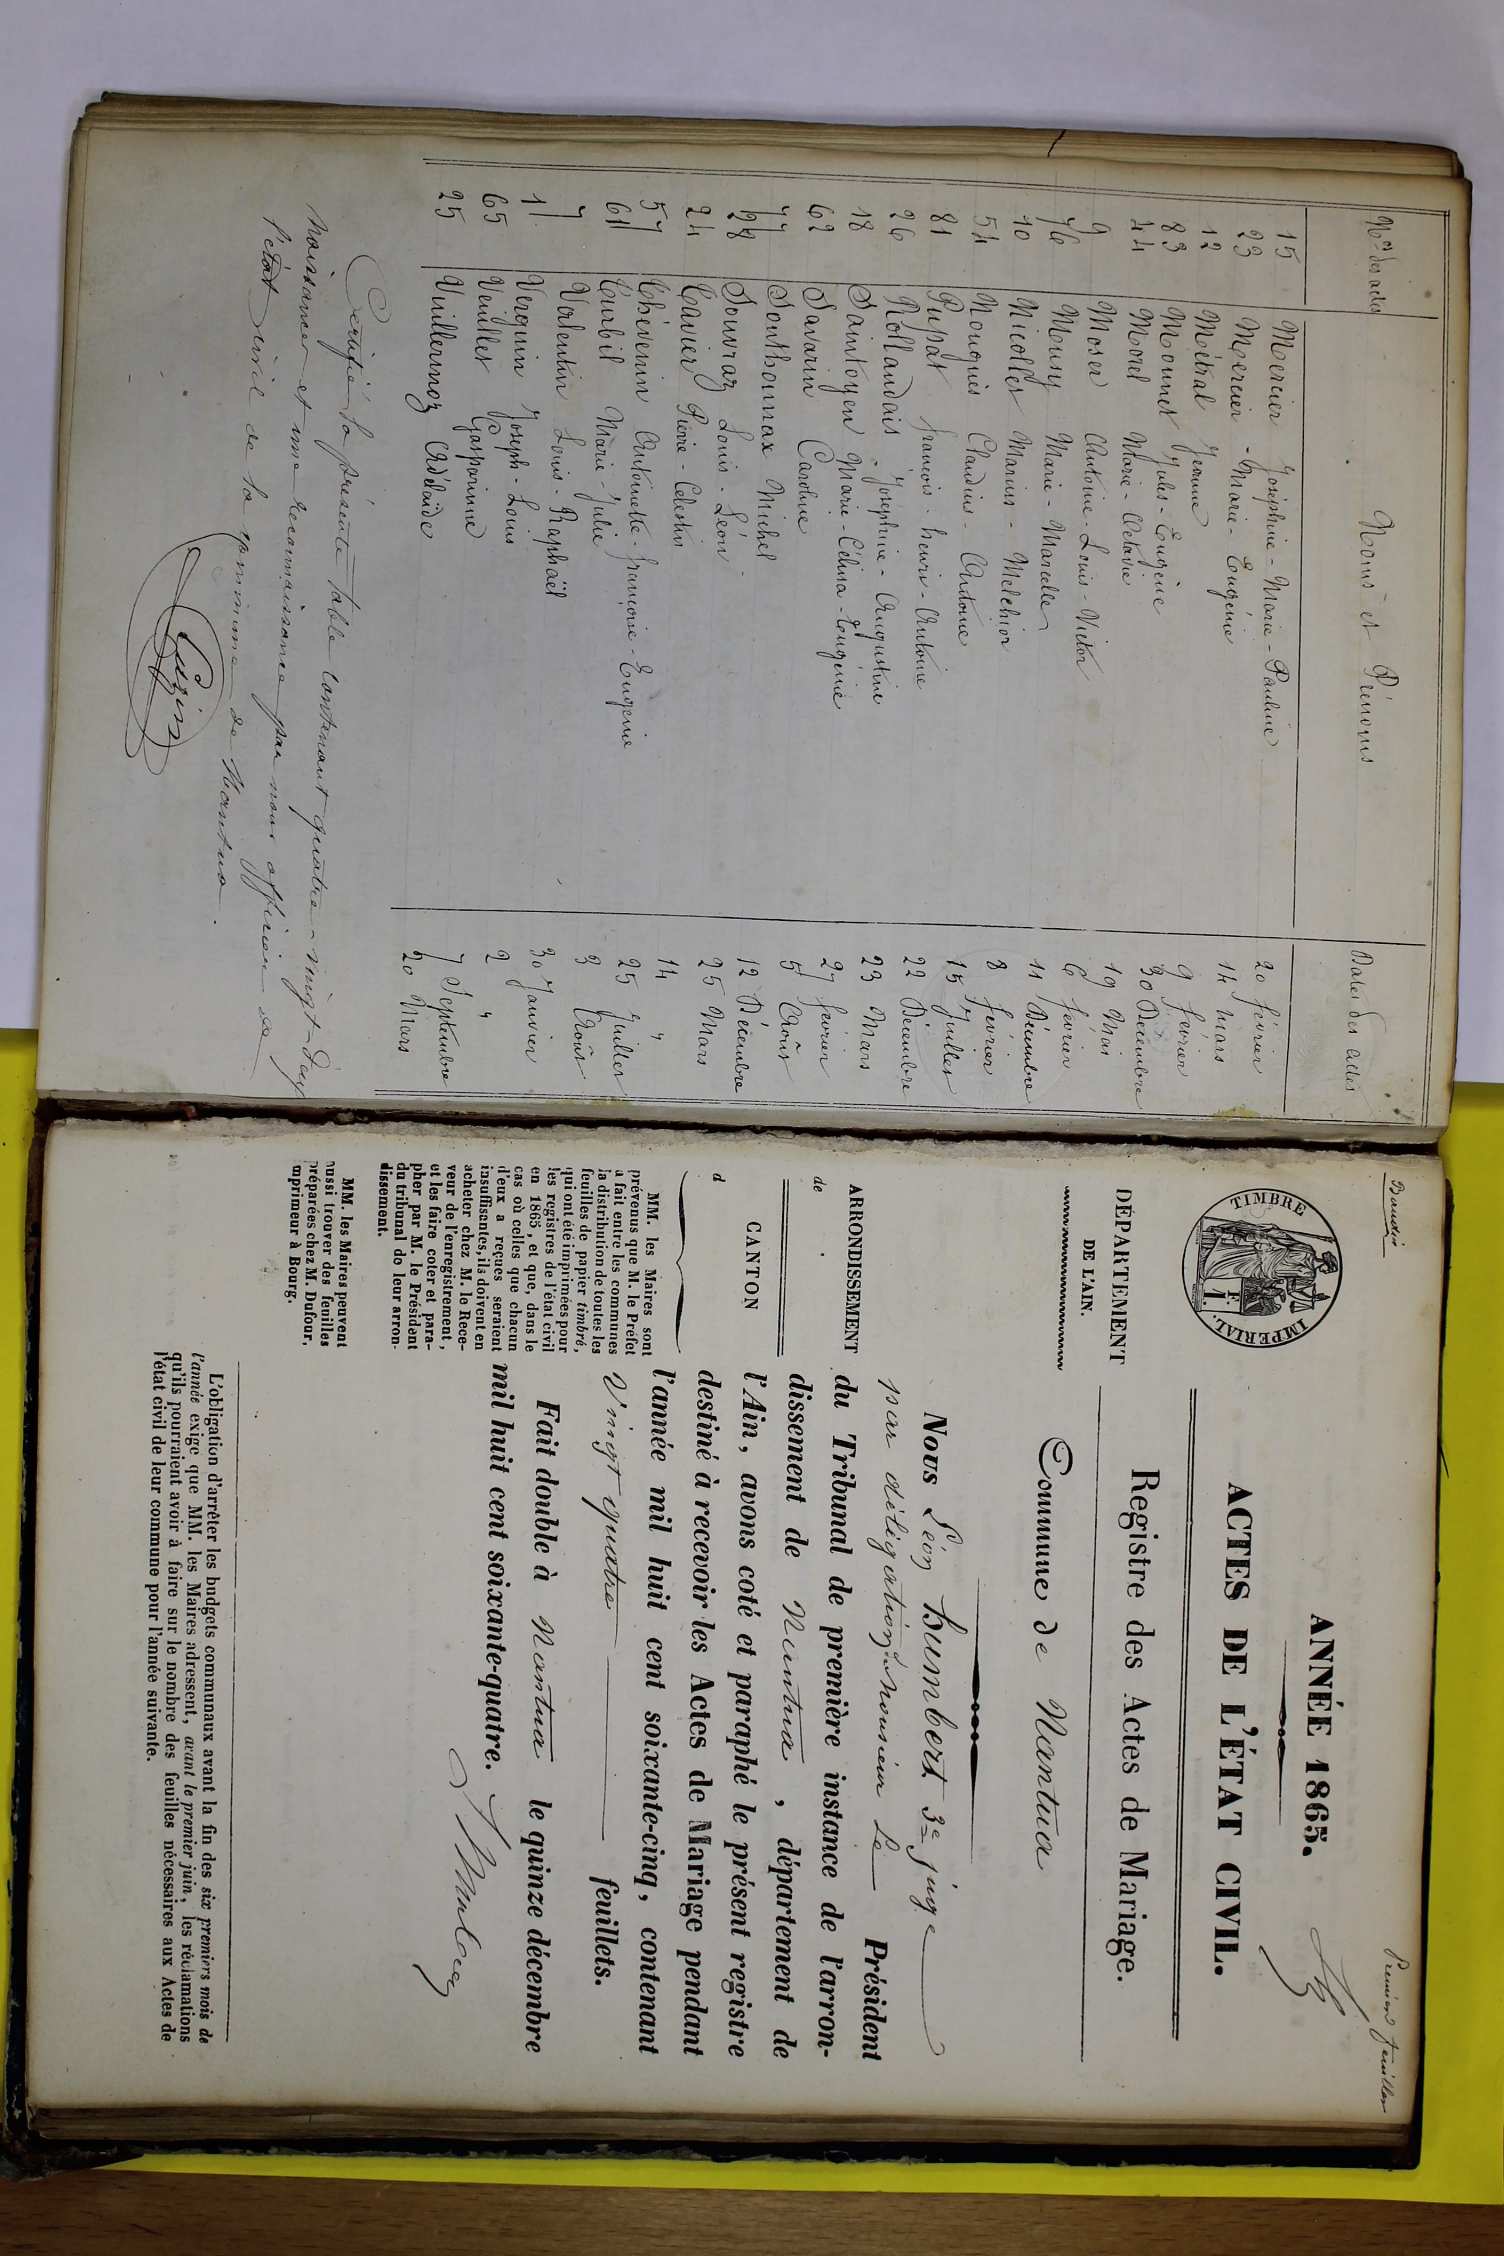 Nos des actes Noms et Prénoms Dates des Actes
15 Mercier Joséphine-Marie-Pauline 20 février
23 Mercier-Marie-Eugénie 14 Mars
12 Métral Jeanne 9 février
83 Mounet Jules-Eugène 30 Décembre
44 Morel Marie-Octavie 19 Mai
9 Moser Antoine-Louis-Victor 6 février
76 Mousy Marie-Marcelle 11 Décembre
10 Nicollet Marius-Melchior 8 février
54 Nouguès Claudius-Antoine 15 Juillet
81 Pupat françois-henri-Antoine 22 Décembre
26 Rollandais Joséphine-Augustine 23 Mars
18 Saintoyen Marie-Célina-Eugénie 27 février
62 Savarin Caroline 5 Août
77 Sonthonnax Michel 12 Décembre
28 Souvraz Louis-Léon 25 Mars
24 Tavier Pierre-Celestin 14 "
57 Thévenin Antoinette-françoise-Eugénie 25 Juillet
61 Turbil Marie-Julie 3 Août
7 Valentin Louis-Raphaël 30 Janvier
1 Verguin Joseph-Louis 2 "
65 Veuillet Gasparinne 7 Septembre
25 Vuillermoz Adélaïde 20 Mars
Certifié la présente table contenant quatre-vingt-dix
naissances et une reconnaissance par nous officier de
l'état civil de la commune de Nantua.
Cuzin
Baudin
Premier feuillet
TIMBRE IMPERIAL.
1 F.
ANNÉE 1865.
ACTES DE L'ÉTAT CIVIL.
DÉPARTEMENT
DE L'AIN.
Registre des Actes de Mariage.
Commune de Nantua
ARRONDISSEMENT
de
CANTON
d
MM. les Maires sont
prévenus que M. le Préfet
a fait entre les communes
la distribution de toutes les
feuilles de papier timbré,
qui ont été imprimées pour
les registres de l'état civil
en 1865, et que, dans le
cas où celles que chacun
d'eux a reçues seraient
insuffisantes, ils doivent en
acheter chez M. le Rece-
veur de l'enregistrement,
et les faire coter et para-
pher par M. le Président
du tribunal de leur arron-
dissement.
MM. les Maires peuvent
aussi trouver des feuilles
préparées chez M. Dufour,
imprimeur à Bourg.
Nous Léon humbert 3e juge
par délégation de monsieur le Président
du Tribunal de première instance de l'arron-
dissement de Nantua, département de
l'Ain, avons coté et paraphé le présent registre
destiné à recevoir les Actes de Mariage pendant
l'année mil huit cent soixante-cinq, contenant
vingt quatre feuillets.
Fait double à Nantua le quinze décembre
mil huit cent soixante-quatre.
L'obligation d'arrêter les budgets communaux avant la fin des six premiers mois de
l'année exige que MM. les Maires adressent, avant le premier juin, les réclamations
qu'ils pourraient avoir à faire sur le nombre des feuilles nécessaires aux Actes de
l'état civil de leur commune pour l'année suivante.